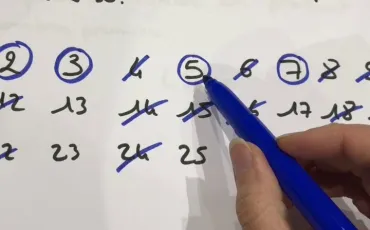 2 3 4 5 6 7 8
12 13 14 15 16 17 18
23 24 25